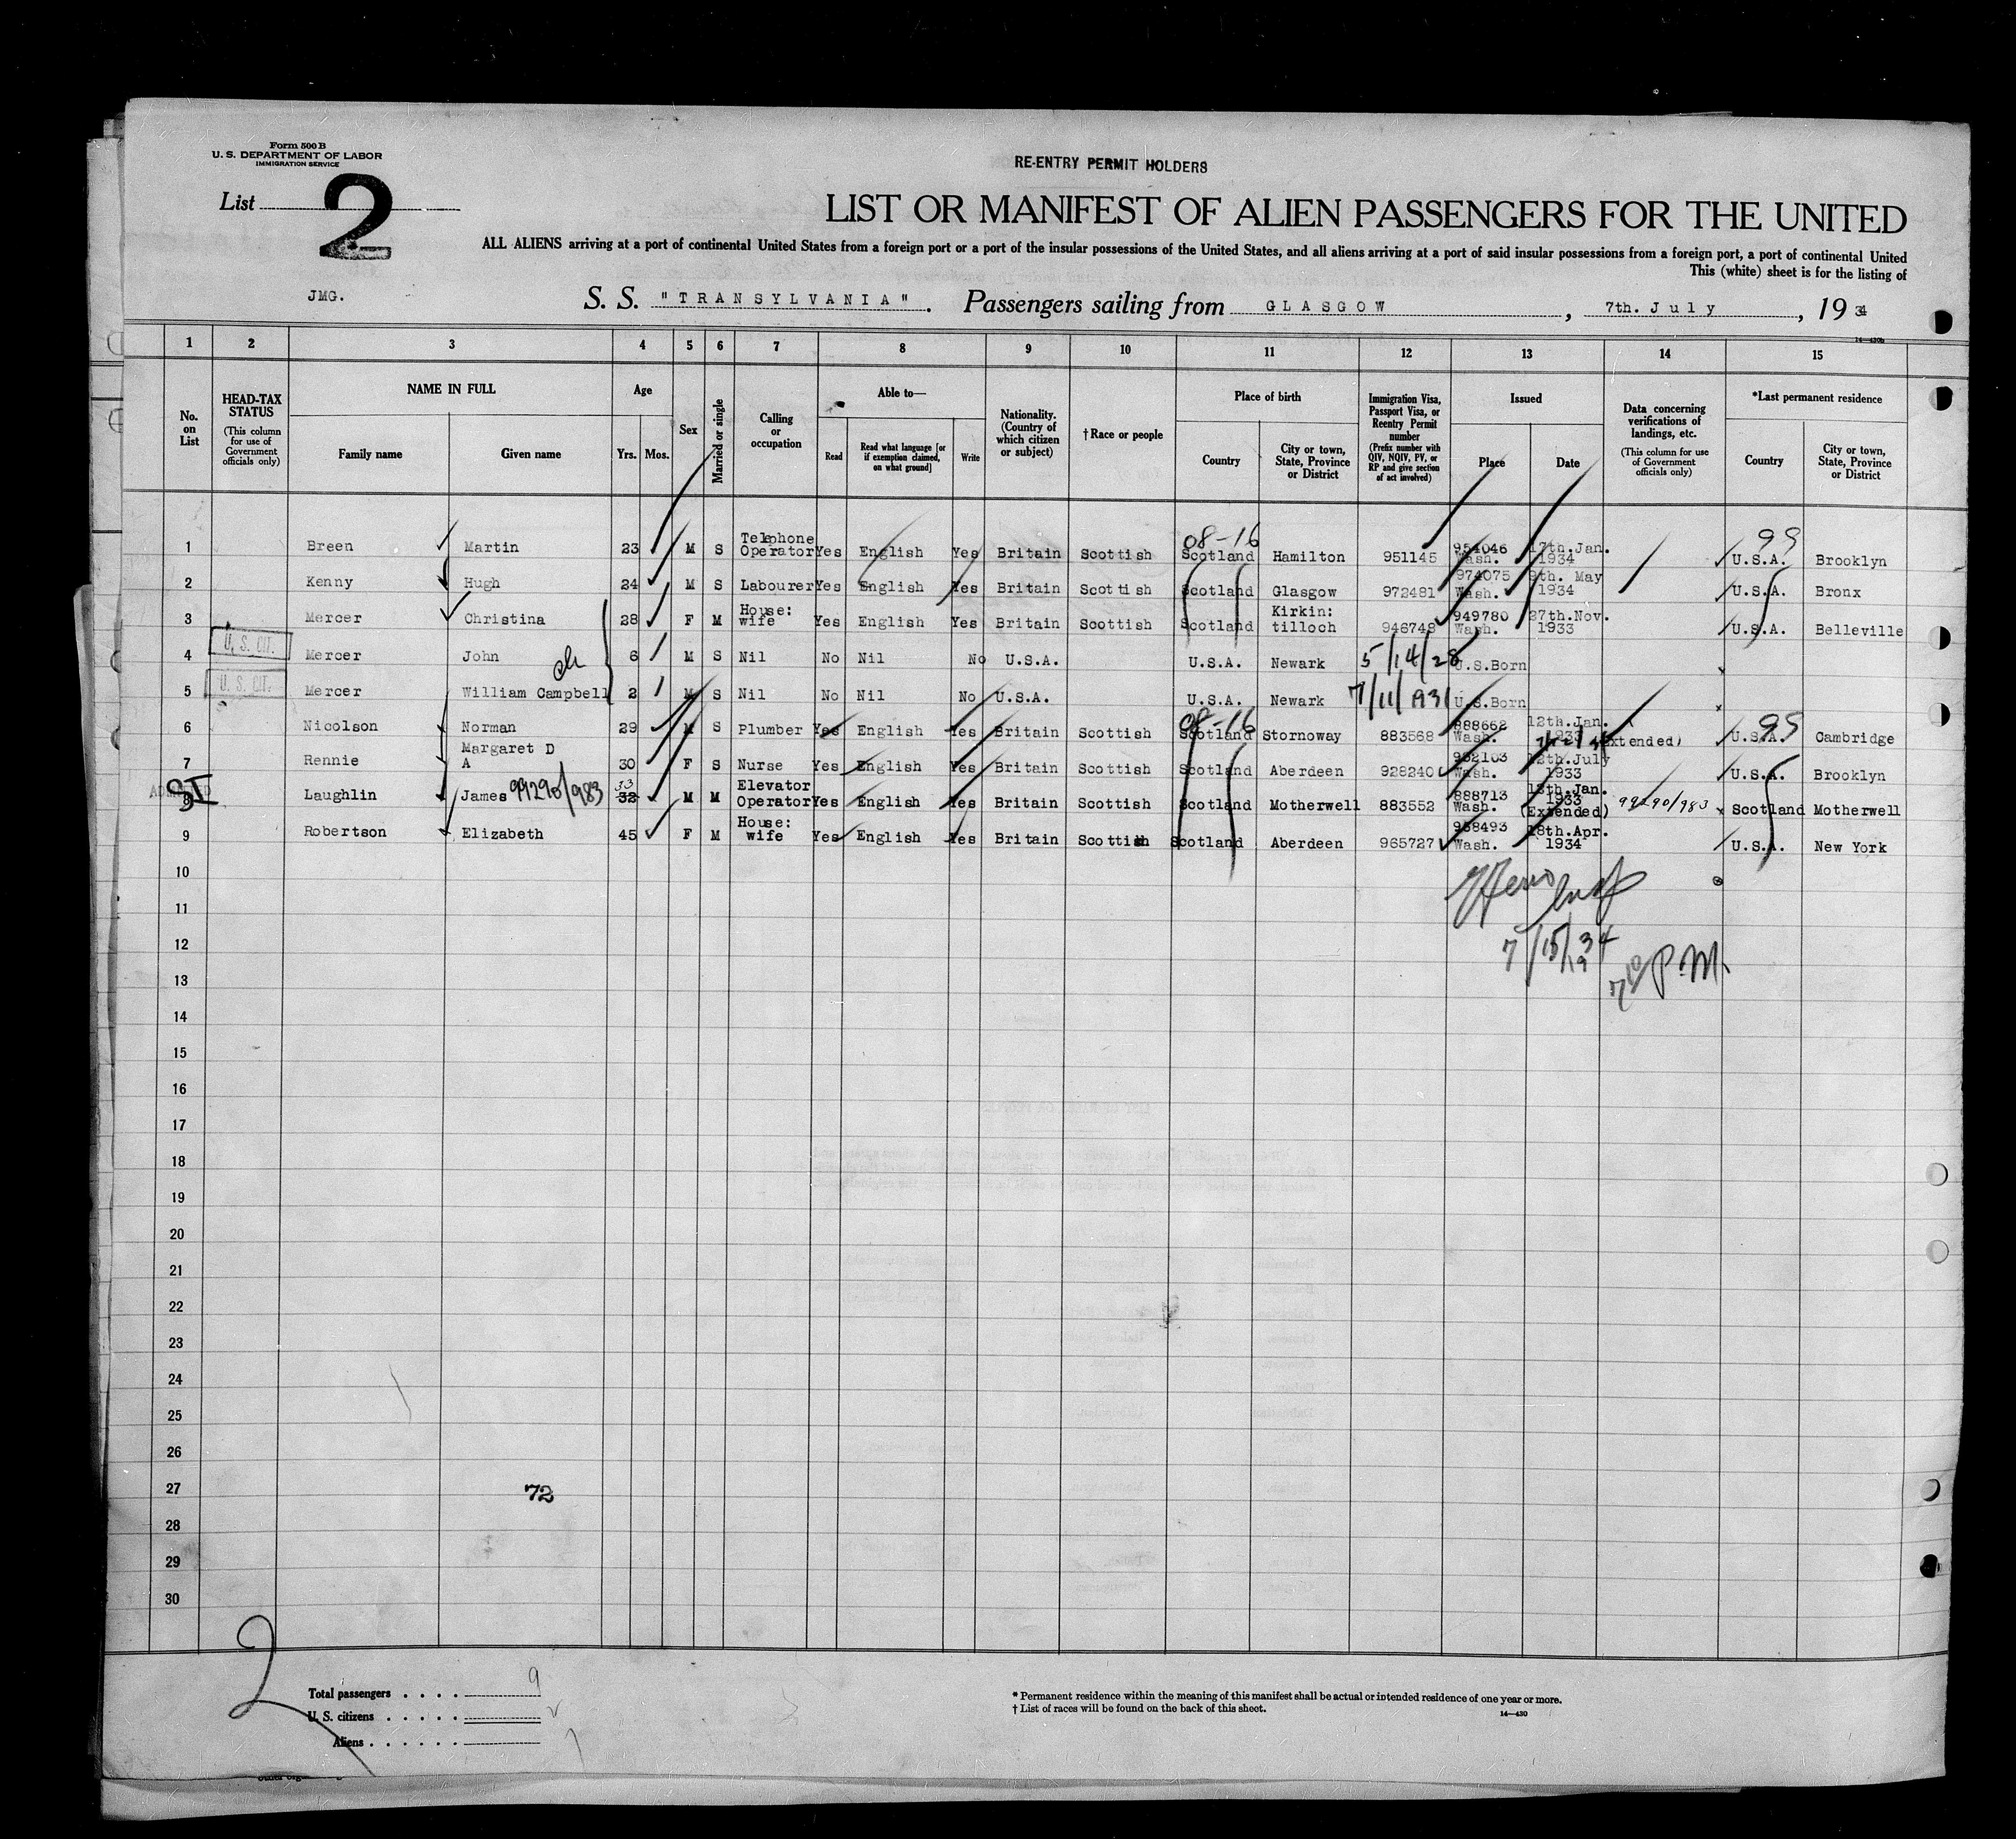 Form 500 B
U. S. DEPARTMENT OF LABOR
IMMIGRATION SERVICE
RE-ENTRY PERMIT HOLDERS
List 2
LIST OR MANIFEST OF ALIEN PASSENGERS FOR THE UNITED
ALL ALIENS arriving at a port of continental United States from a foreign port or a port of the insular possessions of the United States, and all aliens arriving at a port of said insular possessions from a foreign port, a port of continental United
This (white) sheet is for the listing of
JMG. S. S. "TRANSYLVANIA". Passengers sailing from GLASGOW, 7th. July, 1934
14—430b
1 2 3 4 5 6 7 8 9 10 11 12 13 14 15
No. on List
HEAD-TAX STATUS (This column for use of Government officials only)
NAME IN FULL
Family name Given name
Age
Yrs. Mos.
Sex
Married or single
Calling or occupation
Able to—
Read Read what language [or if exemption claimed, on what ground] Write
Nationality. (Country of which citizen or subject)
†Race or people
Place of birth
Country City or town, State, Province or District
Immigration Visa, Passport Visa, or Reentry Permit number (Prefix number with QIV, NQIV, PV, or RP and give section of act involved)
Issued
Place Date
Data concerning verifications of landings, etc. (This column for use of Government officials only)
*Last permanent residence
Country City or town, State, Province or District
08-16 99
1 Breen Martin 23 M S Telephone Operator Yes English Yes Britain Scottish Scotland Hamilton 951145 954046 Wash. 17th.Jan. 1934 U.S.A. Brooklyn
2 Kenny Hugh 24 M S Labourer Yes English Yes Britain Scottish Scotland Glasgow 972481 974075 Wash. 9th. May 1934 U.S.A. Bronx
3 Mercer Christina 28 F M House: wife Yes English Yes Britain Scottish Scotland Kirkin: tilloch 946748 949780 Wash. 27th.Nov. 1933 U.S.A. Belleville
4 U. S. CIT. Mercer John 6 M S Nil No Nil No U.S.A. U.S.A. Newark 5/14/28 U.S.Born
5 U. S. CIT. Mercer William Campbell 2 M S Nil No Nil No U.S.A. U.S.A. Newark 7/11/1931 U.S.Born
08-16 99
6 Nicolson Norman 29 M S Plumber Yes English Yes Britain Scottish Scotland Stornoway 883568 888662 Wash. 12th.Jan. 1933 (Extended) U.S.A. Cambridge
7 Rennie Margaret D A 30 F S Nurse Yes English Yes Britain Scottish Scotland Aberdeen 928240 Wash. 12th.July 1933 U.S.A. Brooklyn
SI ADMITTED
8 Laughlin James 99290/983 32 33 M M Elevator Operator Yes English Yes Britain Scottish Scotland Motherwell 883552 888713 Wash. 13th.Jan. 1933 (Extended) 99290/983 Scotland Motherwell
9 Robertson Elizabeth 45 F M House: wife Yes English Yes Britain Scottish Scotland Aberdeen 965727 968493 Wash. 18th.Apr. 1934 U.S.A. New York
10
11
12 7/15/1934
13 P.M.
14
15
16
17
18
19
20
21
22
23
24
25
26
27 72
28
29
30
2
Total passengers . . . . 9
U. S. citizens . . . . . 2
Aliens . . . . . . 7
* Permanent residence within the meaning of this manifest shall be actual or intended residence of one year or more.
† List of races will be found on the back of this sheet.
14—430